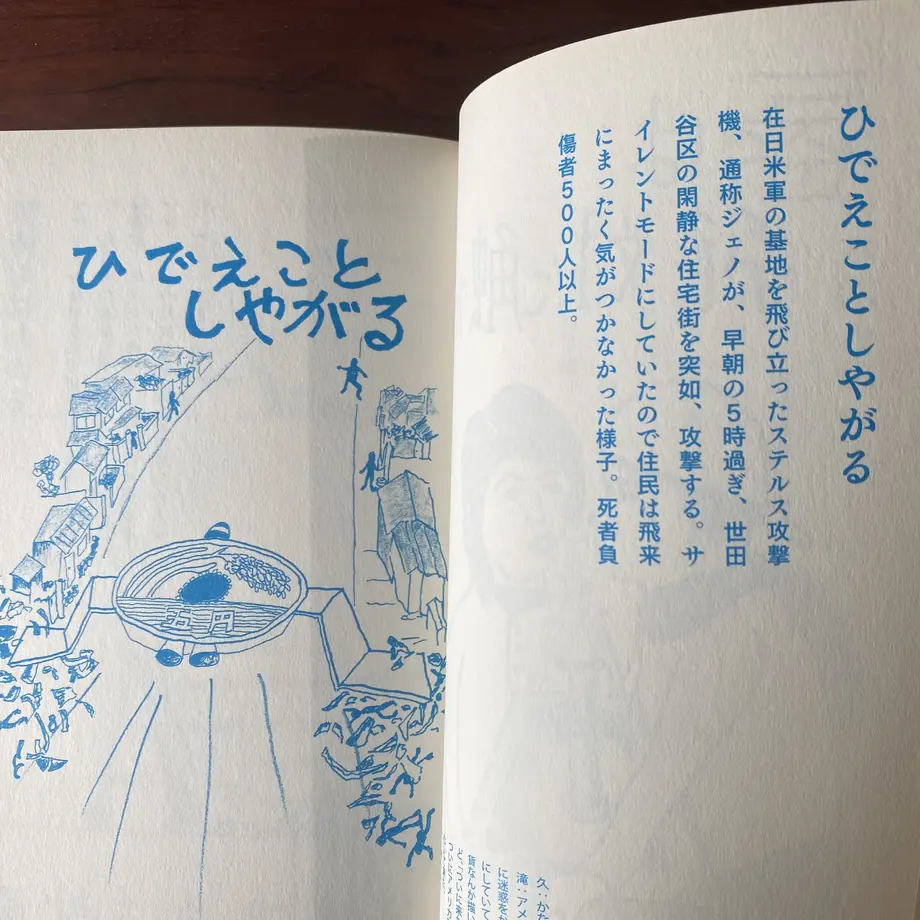 ひでえことしやがる
在日米軍の基地を飛び立ったステルス攻撃
機、通称ジェノが、早朝の5時過ぎ、世田
谷区の閑静な住宅街を突如、攻撃する。サ
イレントモードにしていたので住民は飛来
にまったく気がつかなかった様子。死者負
傷者500人以上。
ひでえこと
しやがる
五円
久:かた
滝:アメ
に迷惑をか
にしていて
貨なんか描い
ど、ついに来